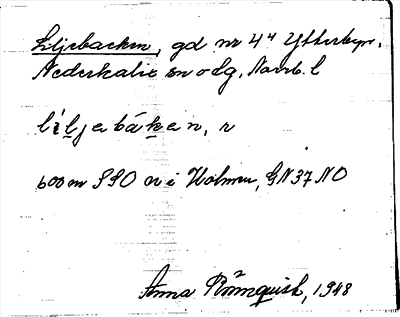 Liljebacken, gd nr 4⁴ Ytterbyn,
Nederkalix sn o lg, Norrb. l
li̍lj̱ebák̠en, r
600 m SSO nr i Holmen, GN37NO
Anna Rönnquist, 1948